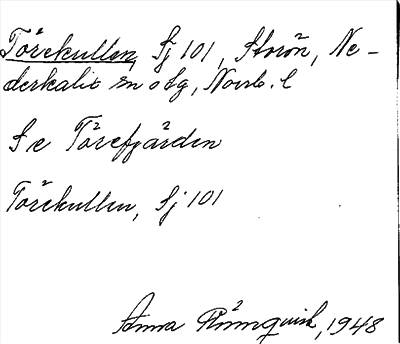 Törekullen, Sj 101, Storön, Ne-
derkalix sn o tg, Norrb. l
Se Törefjärden
Törekullen, Sj 101
Anna Rönnquist, 1948